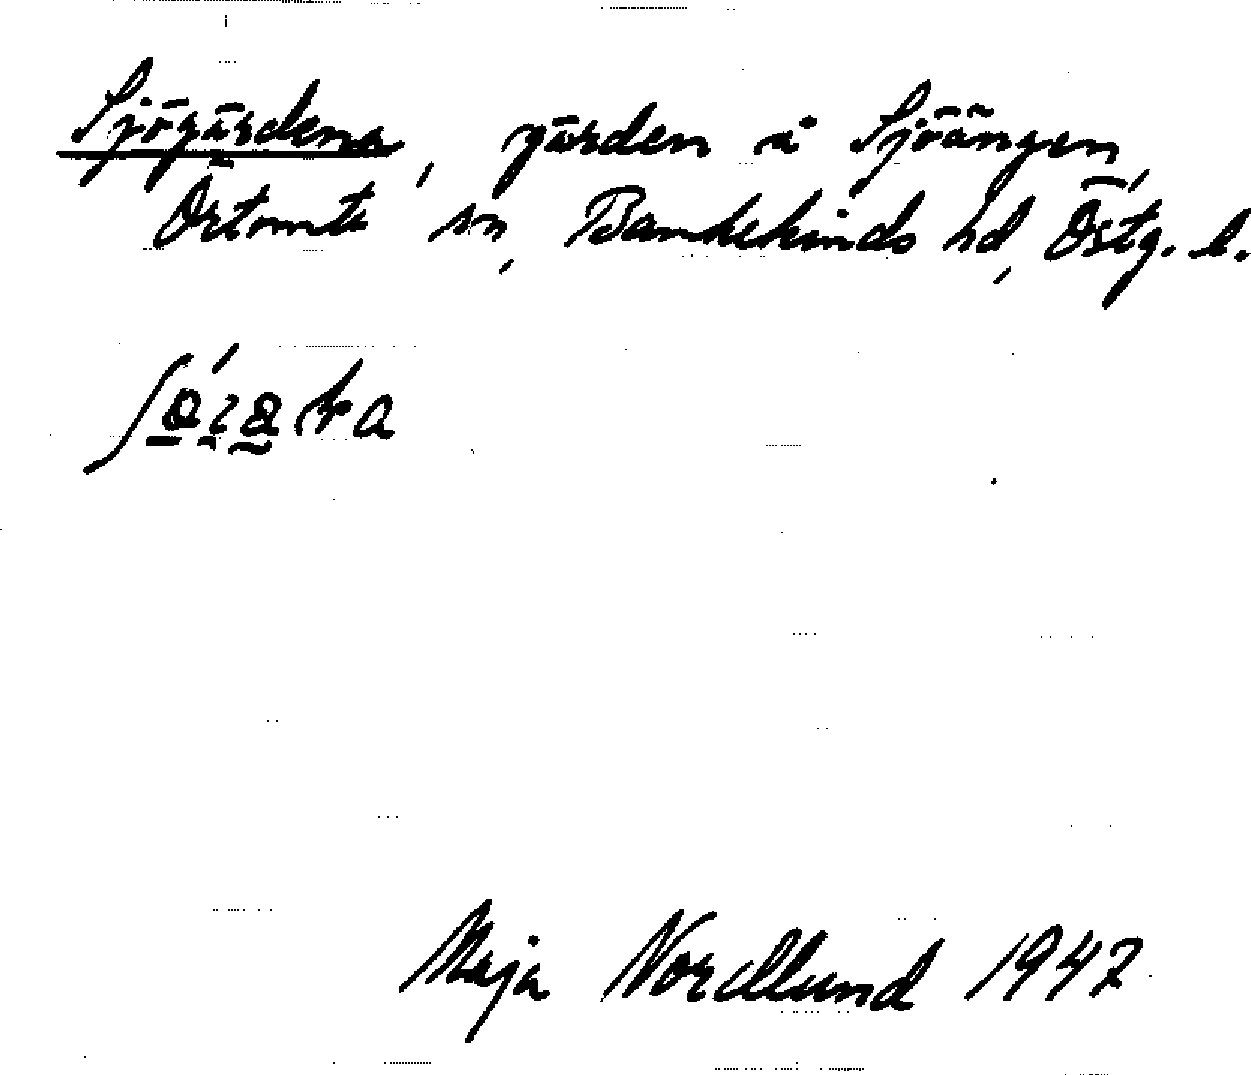 Sjögärdena, gärden å Sjöängen,
Örtomta sn, Bankekinds hd, Östg. l.
Maja Nordlund 1947